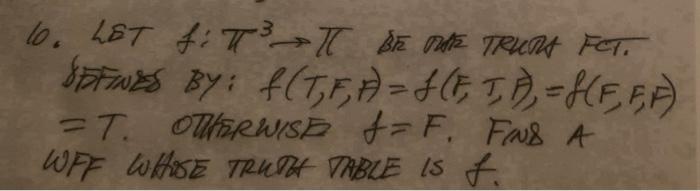 10. LET f: 𝕋³ → 𝕋 BE THE TRUTH FCT.
DEFINED BY: f(T,F,F) = f(F,T,F), = f(F,F,F)
= T. OTHERWISE f = F. FIND A
WFF WHOSE TRUTH TABLE IS f.